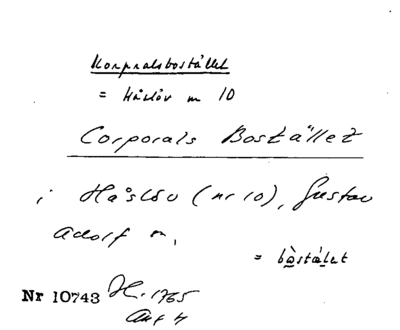 Korpralsbostället
= Håslöv nr 10
Corporals Bostället
i Håslöv (nr 10), Gustav
Adolf sn,
= bòstálet
Nr 10743 H. 1765